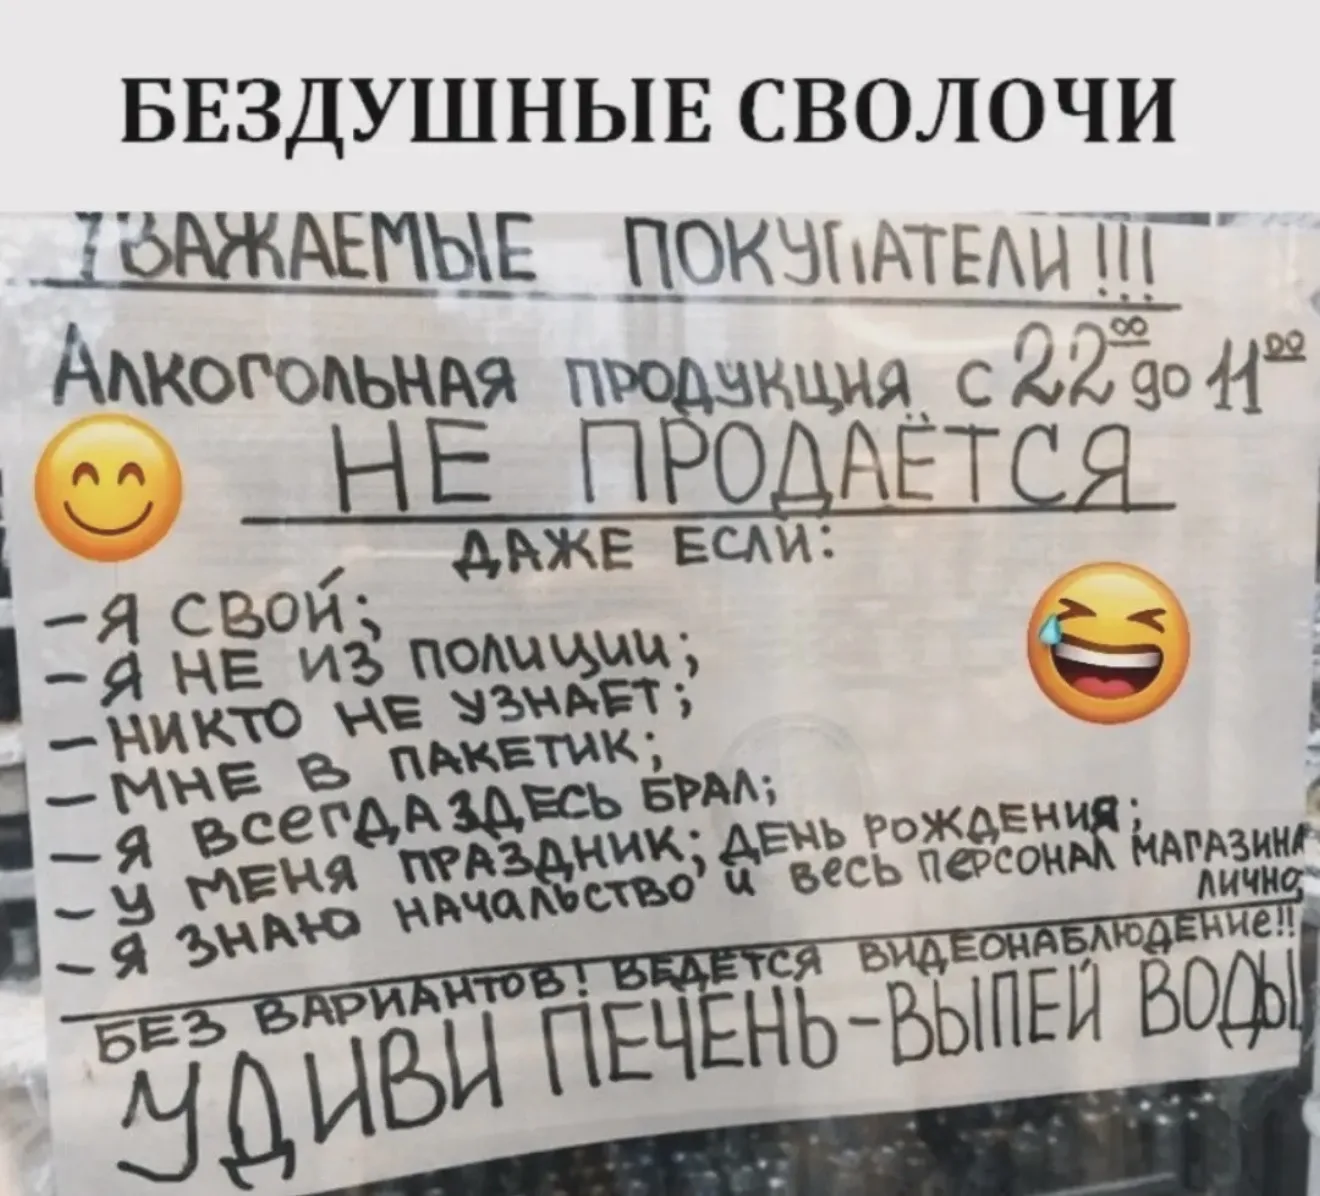 БЕЗДУШНЫЕ СВОЛОЧИ
УВАЖАЕМЫЕ ПОКУПАТЕЛИ!!!
Алкогольная продукция с 22⁰⁰ до 11⁰⁰
НЕ ПРОДАЁТСЯ
ДАЖЕ ЕСЛИ:
- Я СВОЙ;
- Я НЕ ИЗ ПОЛИЦИИ;
- НИКТО НЕ УЗНАЕТ;
- МНЕ В ПАКЕТИК;
- Я ВСЕГДА ЗДЕСЬ БРАЛ;
- У МЕНЯ ПРАЗДНИК; ДЕНЬ РОЖДЕНИЯ;
- Я ЗНАЮ НАЧАЛЬСТВО И ВЕСЬ ПЕРСОНАЛ МАГАЗИНА
ЛИЧНО;
БЕЗ ВАРИАНТОВ! ВЕДЁТСЯ ВИДЕОНАБЛЮДЕНИЕ!!
УДИВИ ПЕЧЕНЬ-ВЫПЕЙ ВОДЫ